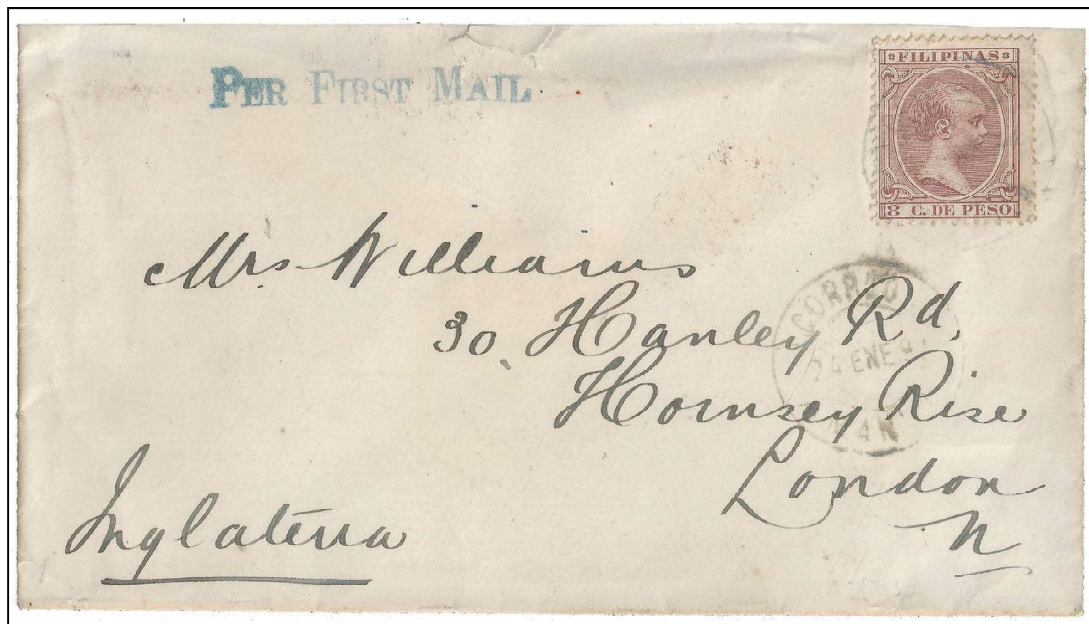 PER FIRST MAIL
FILIPINAS
8 C. DE PESO
Mrs Williams
30, Hanley Rd,
Hornsey Rise
London
N
Inglaterra
CORREO
24 ENE